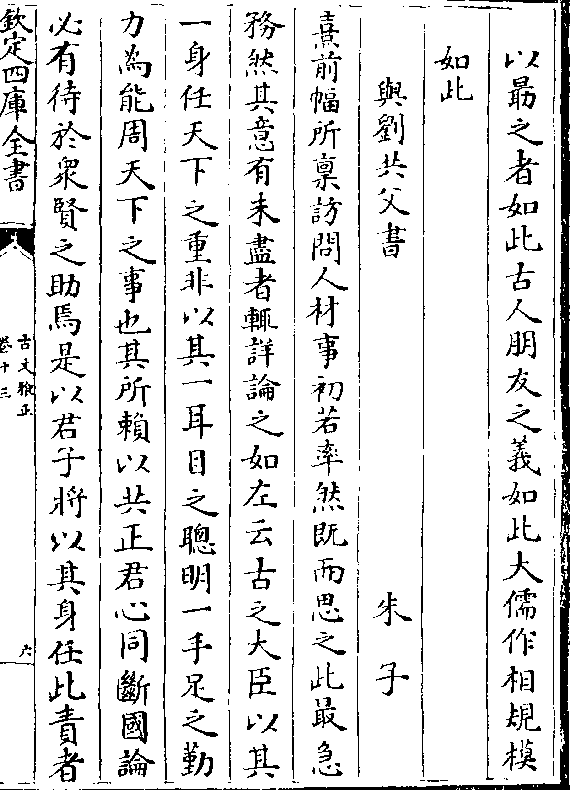 以朂之者如此古人朋友之義如此大儒作相規模
如此
與劉共父書　朱子
熹前幅所稟訪問人材事初若率然既而思之此最急
務然其意有未盡者輒詳論之如左云古之大臣以其
一身任天下之重非以其一耳目之聰明一手足之勤
力為能周天下之事也其所賴以共正君心同斷國論
必有待於衆賢之助焉是以君子將以其身任此責者
欽定四庫全書
古文雅正
卷十三
六